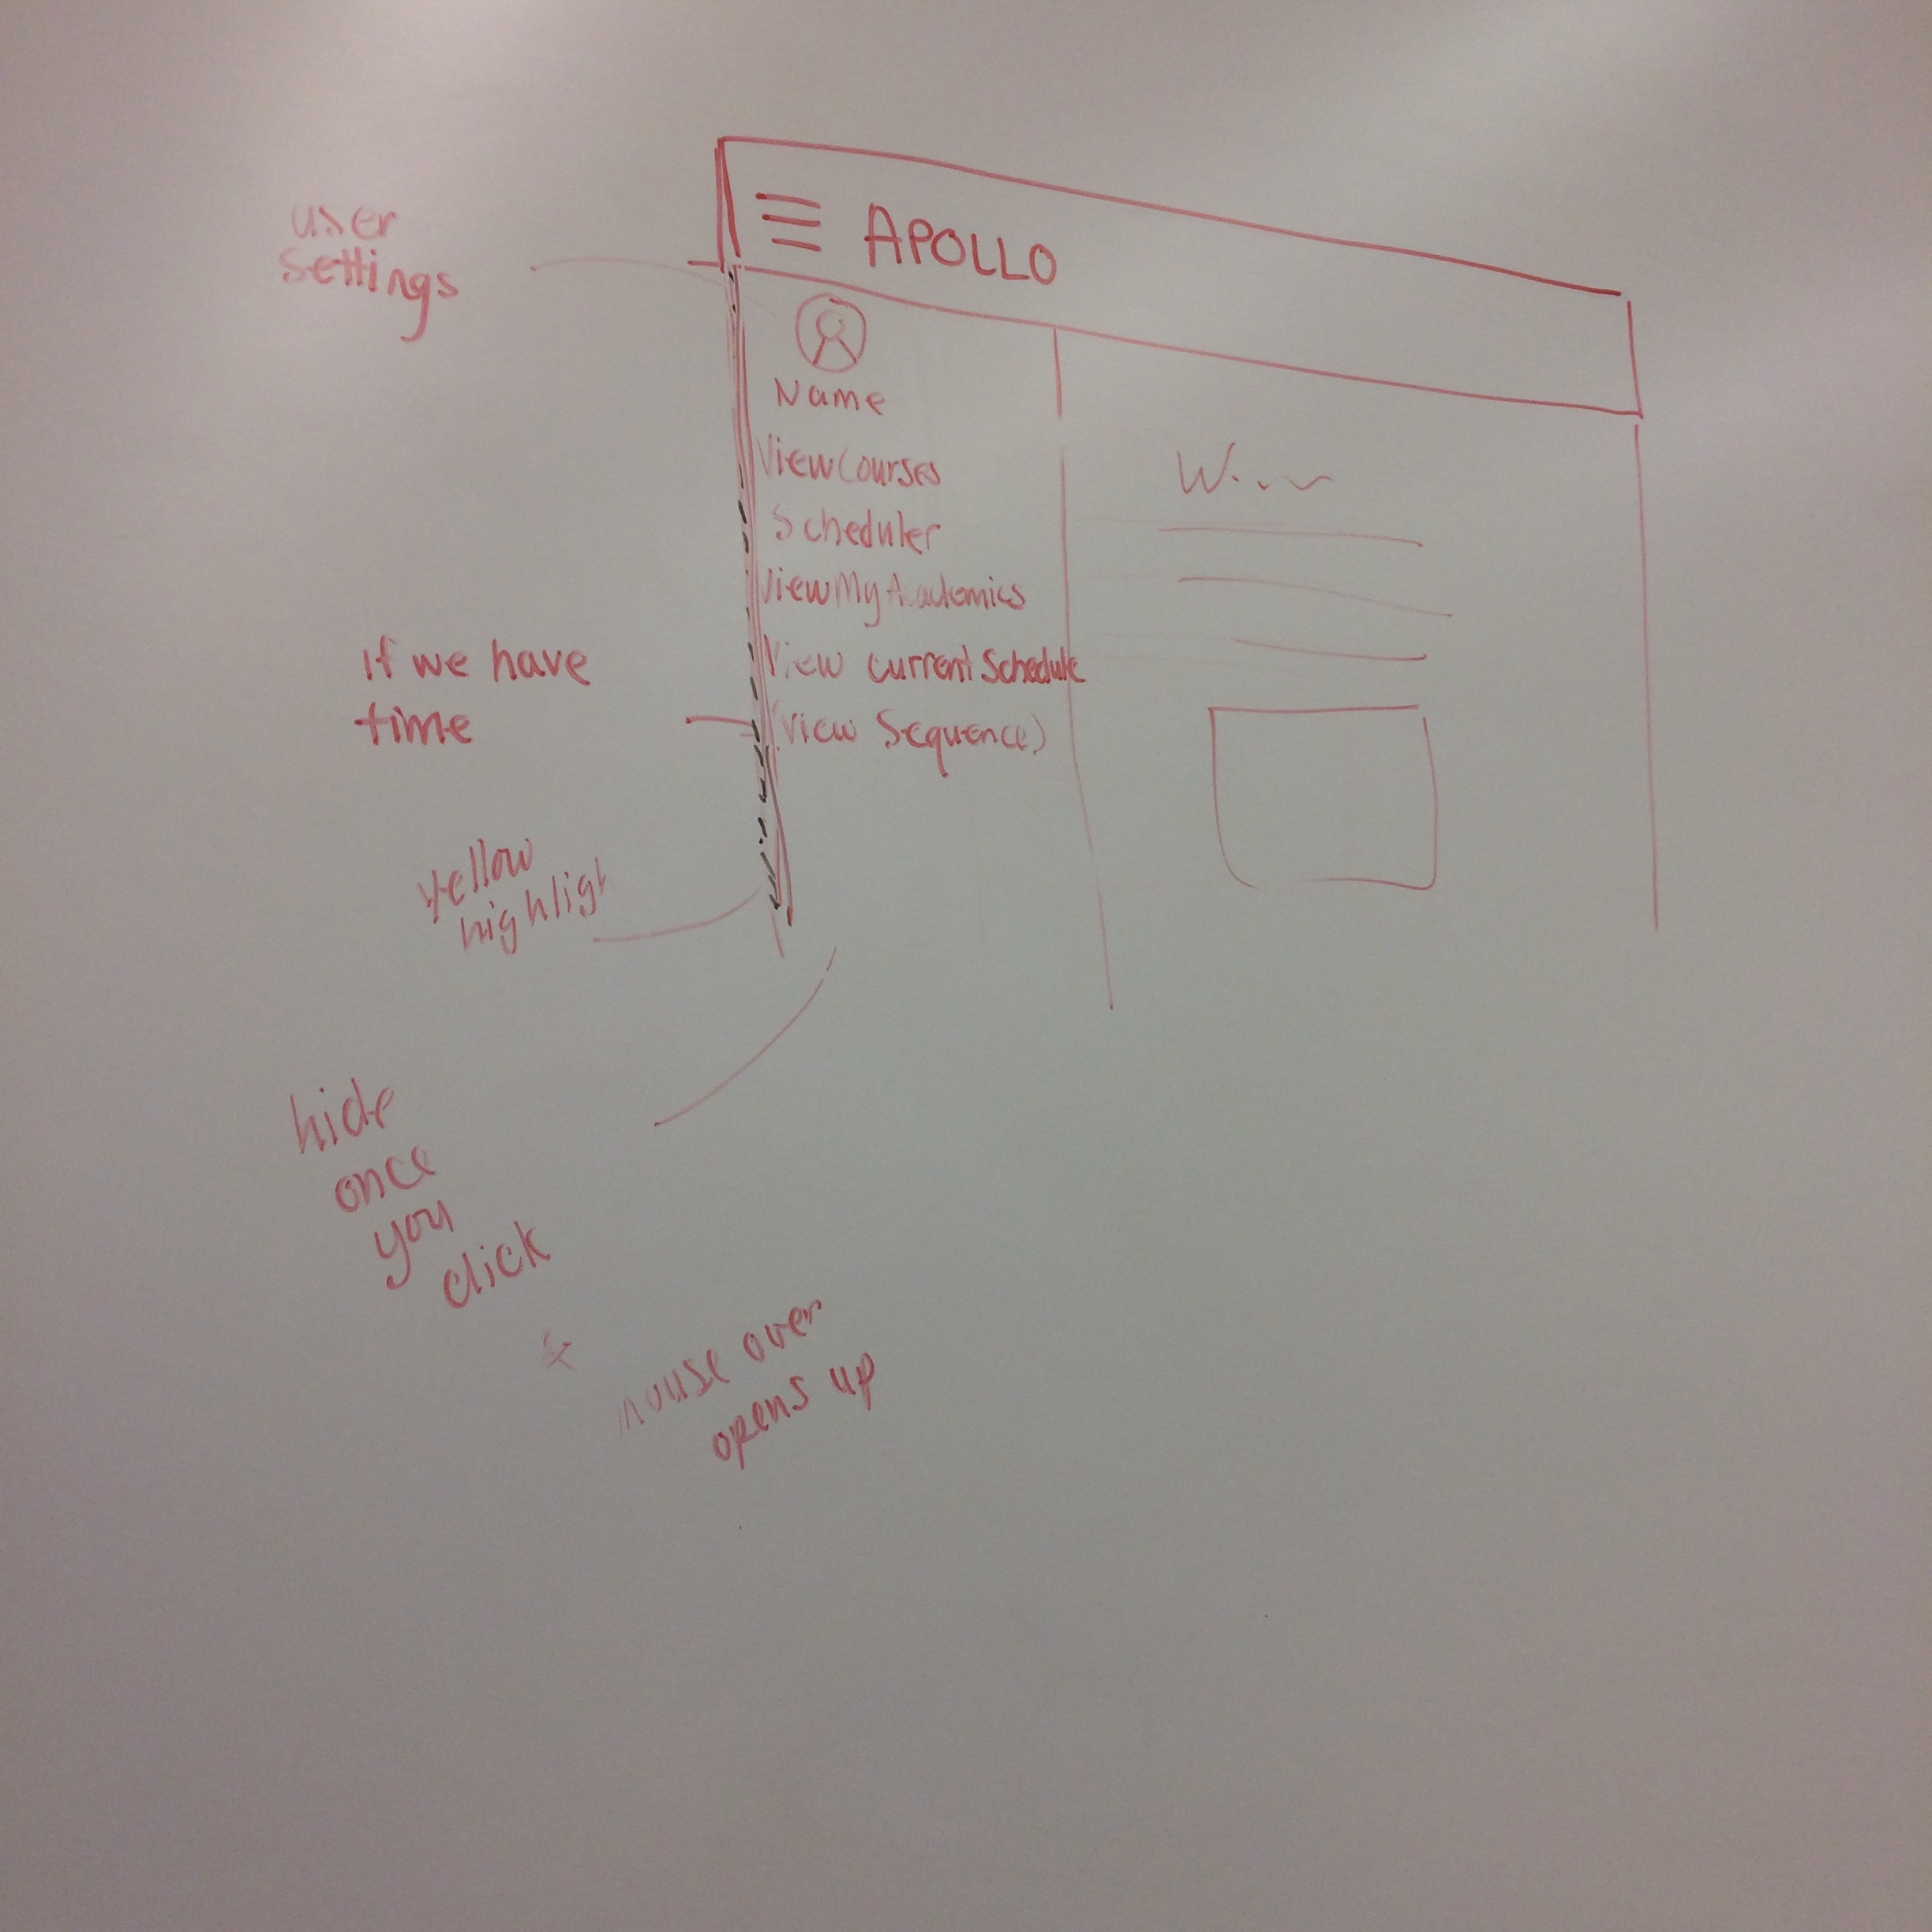 APOLLO
user
settings
Name
View Courses
Scheduler
View My Academics
View current Schedule
(View Sequence)
If we have
time
yellow
highligh
hide
once
you
click
&
mouse over
opens up